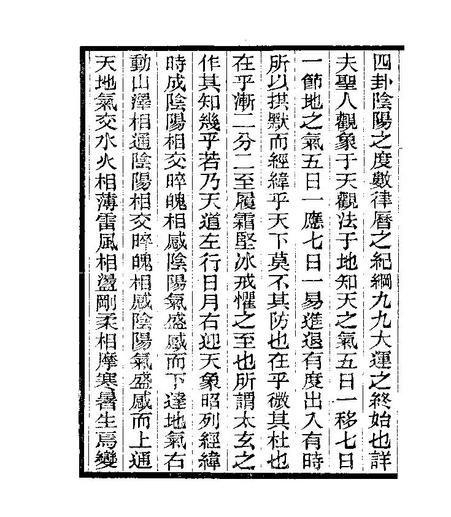 四卦陰陽之度數律曆之紀綱九九大運之終始也詳
夫聖人觀象于天觀法于地知天之氣五日一移七日
一節地之氣五日一應七日一易進退有度出入有時
所以拱默而經緯乎天下莫不其防也在乎微其杜也
在乎漸二分二至履霜堅冰戒懼之至也所謂太玄之
作其知幾乎若乃天道左行日月右迎天象昭列經緯
時成陰陽相交晬魄相感陰陽氣盛感而下達地氣右
動山澤相通陰陽相交晬魄相感陰陽氣盛感而上通
天地氣交水火相薄雷風相盪剛柔相摩寒暑生焉變